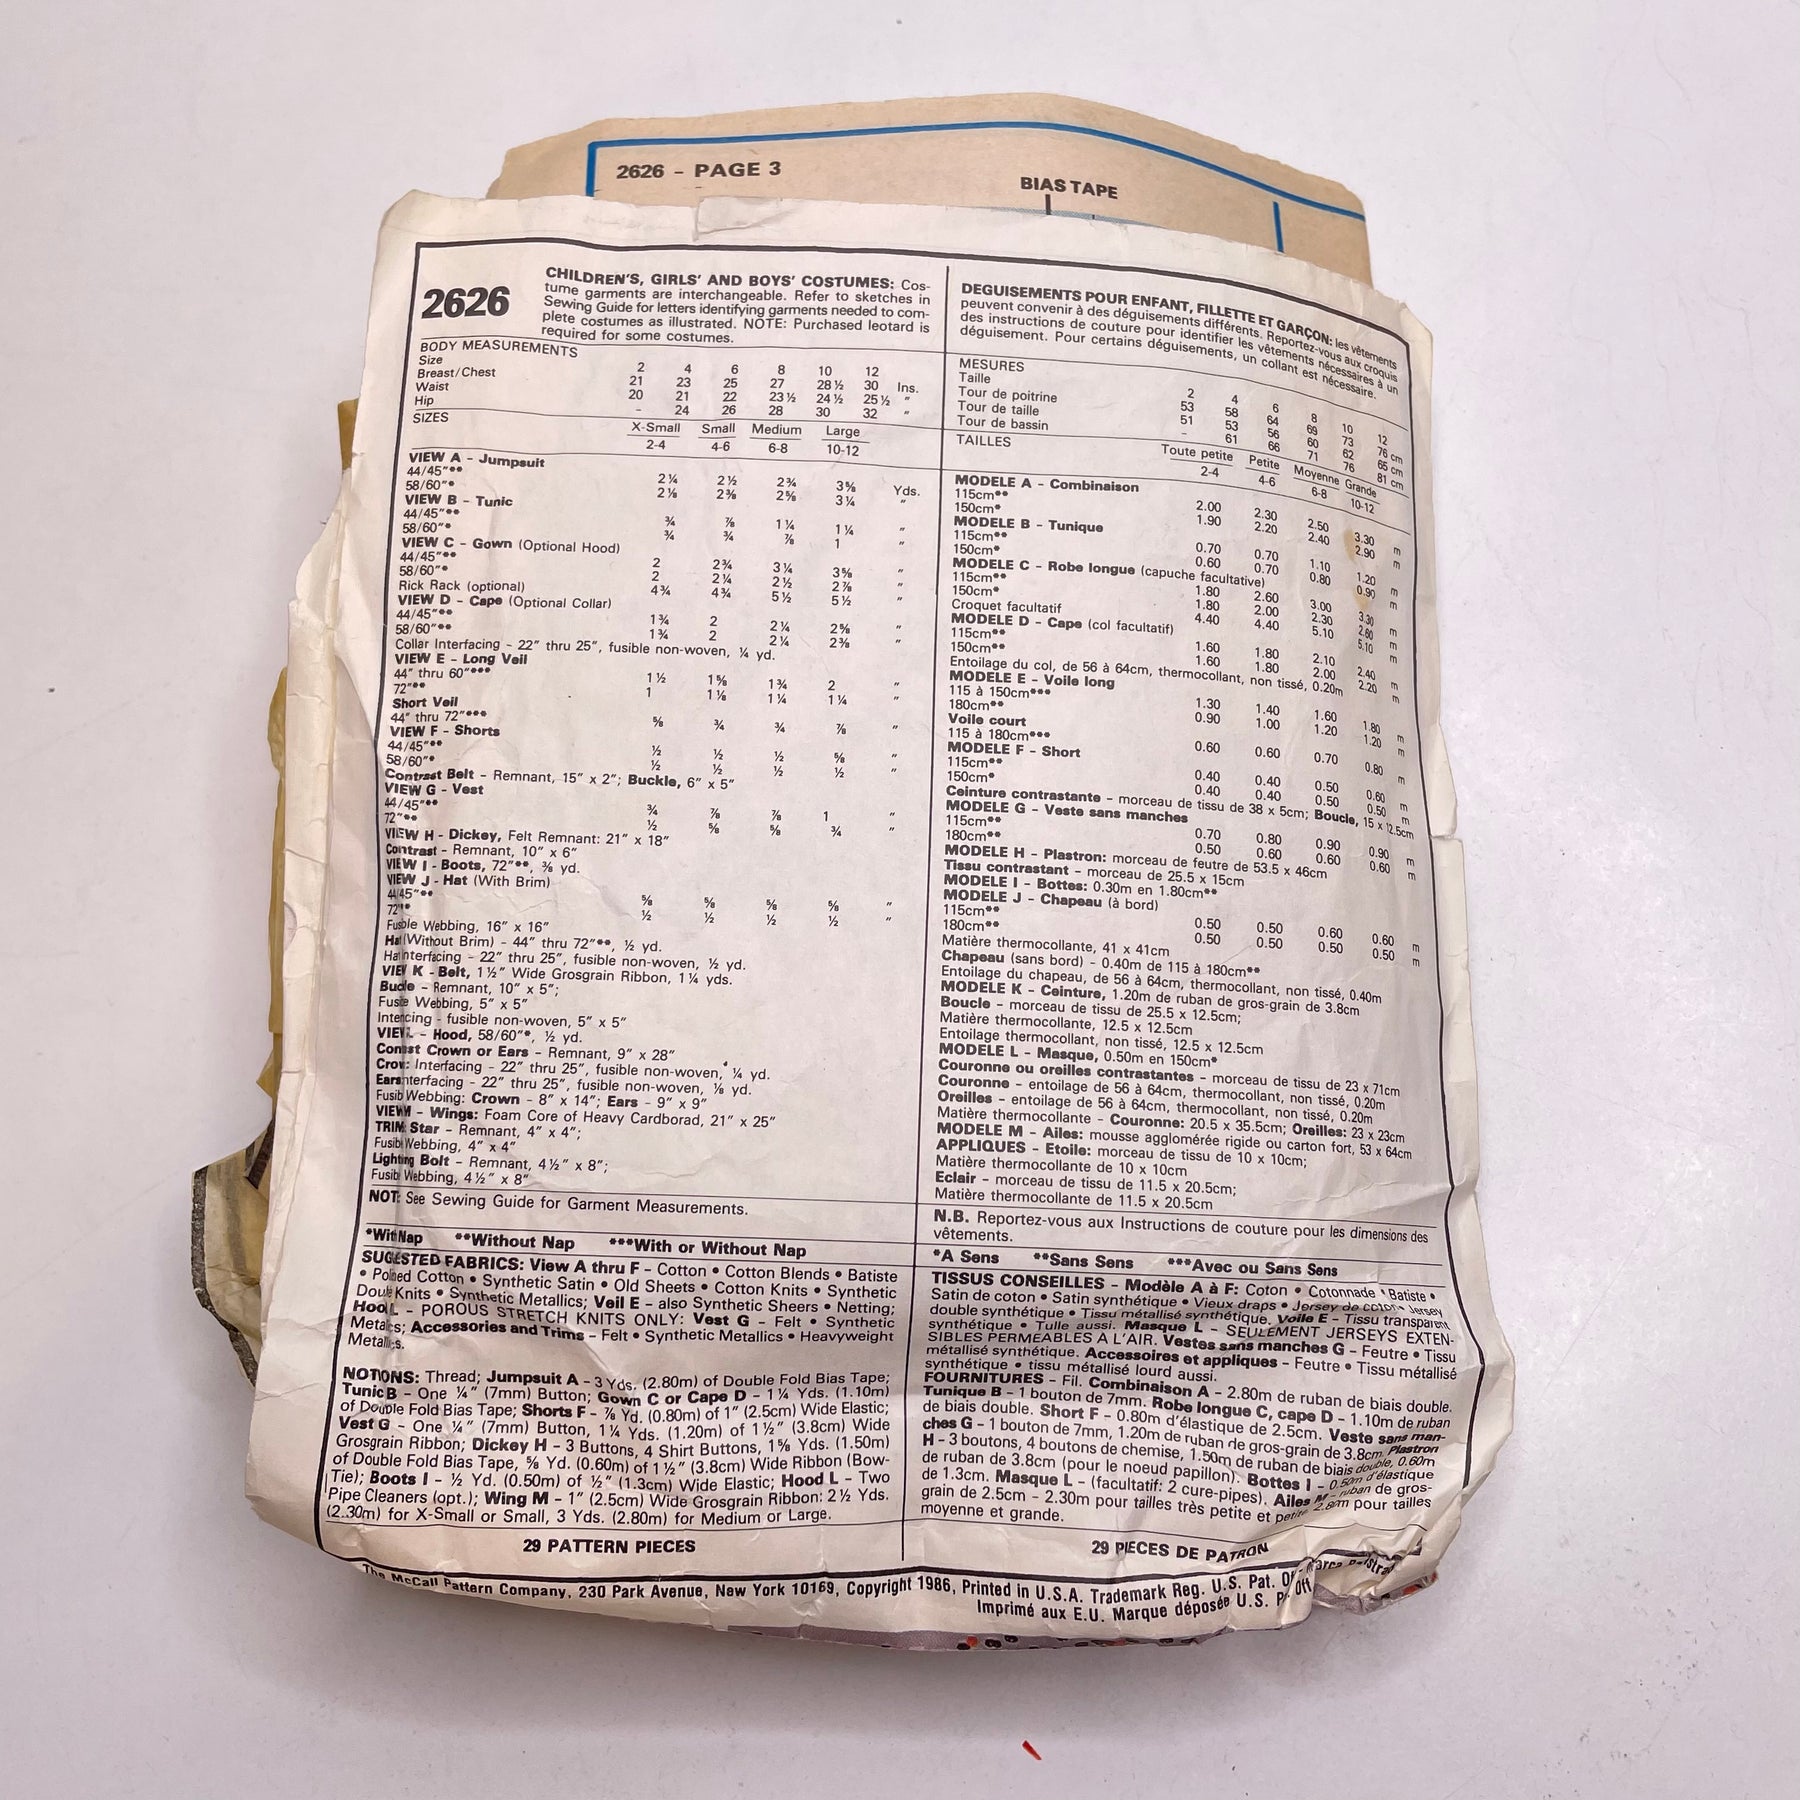 2626 - PAGE 3
BIAS TAPE
2626
CHILDREN'S, GIRLS' AND BOYS' COSTUMES: Cos-
tume garments are interchangeable. Refer to sketches in
Sewing Guide for letters identifying garments needed to com-
plete costumes as illustrated. NOTE: Purchased leotard is
required for some costumes.
BODY MEASUREMENTS
Size 2 4 6 8 10 12
Breast/Chest 21 23 25 27 28½ 30 Ins.
Waist 20 21 22 23½ 24½ 25½ "
Hip - 24 26 28 30 32 "
SIZES X-Small Small Medium Large
2-4 4-6 6-8 10-12
VIEW A - Jumpsuit
44/45"** 2¼ 2½ 2¾ 3⅝ Yds.
58/60"* 2⅛ 2⅜ 2⅝ 3¼ "
VIEW B - Tunic
44/45"** ¾ ⅞ 1¼ 1¼ "
58/60"* ¾ ¾ ⅞ 1 "
VIEW C - Gown (Optional Hood)
44/45"** 2 2¾ 3¼ 3⅝ "
58/60"* 2 2¼ 2½ 2⅞ "
Rick Rack (optional) 4¾ 4¾ 5½ 5½ "
VIEW D - Cape (Optional Collar)
44/45"** 1¾ 2 2¼ 2⅝ "
58/60"** 1¾ 2 2¼ 2⅜ "
Collar Interfacing - 22" thru 25", fusible non-woven, ¼ yd.
VIEW E - Long Veil
44" thru 60"*** 1½ 1⅝ 1¾ 2 "
72"** 1 1⅛ 1¼ 1¼ "
Short Veil
44" thru 72"*** ⅝ ¾ ¾ ⅞ "
VIEW F - Shorts
44/45"** ½ ½ ½ ⅝ "
58/60"* ½ ½ ½ ½ "
Contrast Belt - Remnant, 15" x 2"; Buckle, 6" x 5"
VIEW G - Vest
44/45"** ¾ ⅞ ⅞ 1 "
72"** ½ ⅝ ⅝ ¾ "
VIEW H - Dickey, Felt Remnant: 21" x 18"
Contrast - Remnant, 10" x 6"
VIEW I - Boots, 72"**, ⅜ yd.
VIEW J - Hat (With Brim)
44/45"** ⅝ ⅝ ⅝ ⅝ "
72"** ½ ½ ½ ½ "
Fusible Webbing, 16" x 16"
Hat (Without Brim) - 44" thru 72"**, ½ yd.
Hat Interfacing - 22" thru 25", fusible non-woven, ½ yd.
VIEW K - Belt, 1½" Wide Grosgrain Ribbon, 1¼ yds.
Buckle - Remnant, 10" x 5";
Fusible Webbing, 5" x 5"
Interfacing - fusible non-woven, 5" x 5"
VIEW L - Hood, 58/60"*, ½ yd.
Contrast Crown or Ears - Remnant, 9" x 28"
Crown: Interfacing - 22" thru 25", fusible non-woven, ¼ yd.
Ears: Interfacing - 22" thru 25", fusible non-woven, ⅛ yd.
Fusible Webbing: Crown - 8" x 14"; Ears - 9" x 9"
VIEW M - Wings: Foam Core of Heavy Cardborad, 21" x 25"
TRIM: Star - Remnant, 4" x 4";
Fusible Webbing, 4" x 4"
Lighting Bolt - Remnant, 4½" x 8";
Fusible Webbing, 4½" x 8"
NOTE: See Sewing Guide for Garment Measurements.
*With Nap **Without Nap ***With or Without Nap
SUGGESTED FABRICS: View A thru F - Cotton • Cotton Blends • Batiste
• Polished Cotton • Synthetic Satin • Old Sheets • Cotton Knits • Synthetic
Double Knits • Synthetic Metallics; Veil E - also Synthetic Sheers • Netting;
Hood L - POROUS STRETCH KNITS ONLY: Vest G - Felt • Synthetic
Metallics; Accessories and Trims - Felt • Synthetic Metallics • Heavyweight
Metallics.
NOTIONS: Thread; Jumpsuit A - 3 Yds. (2.80m) of Double Fold Bias Tape;
Tunic B - One ¼" (7mm) Button; Gown C or Cape D - 1¼ Yds. (1.10m)
of Double Fold Bias Tape; Shorts F - ⅞ Yd. (0.80m) of 1" (2.5cm) Wide Elastic;
Vest G - One ¼" (7mm) Button, 1¼ Yds. (1.20m) of 1½" (3.8cm) Wide
Grosgrain Ribbon; Dickey H - 3 Buttons, 4 Shirt Buttons, 1⅝ Yds. (1.50m)
of Double Fold Bias Tape, ⅝ Yd. (0.60m) of 1½" (3.8cm) Wide Ribbon (Bow-
Tie); Boots I - ½ Yd. (0.50m) of ½" (1.3cm) Wide Elastic; Hood L - Two
Pipe Cleaners (opt.); Wing M - 1" (2.5cm) Wide Grosgrain Ribbon: 2½ Yds.
(2.30m) for X-Small or Small, 3 Yds. (2.80m) for Medium or Large.
29 PATTERN PIECES
DEGUISEMENTS POUR ENFANT, FILLETTE ET GARÇON: les vêtements
peuvent convenir à des déguisements différents. Reportez-vous aux croquis
des instructions de couture pour identifier les vêtements nécessaires à un
déguisement. Pour certains déguisements, un collant est nécessaire.
MESURES
Taille 2 4 6 8 10 12
Tour de poitrine 53 58 64 69 73 76 cm
Tour de taille 51 53 56 60 62 65 cm
Tour de bassin - 61 66 71 76 81 cm
TAILLES Toute petite Petite Moyenne Grande
2-4 4-6 6-8 10-12
MODELE A - Combinaison
115cm** 2.00 2.30 2.50 3.30 m
150cm* 1.90 2.20 2.40 2.90 m
MODELE B - Tunique
115cm** 0.70 0.70 1.10 1.20 m
150cm* 0.60 0.70 0.80 0.90 m
MODELE C - Robe longue (capuche facultative)
115cm** 1.80 2.60 3.00 3.30 m
150cm* 1.80 2.00 2.30 2.60 m
Croquet facultatif 4.40 4.40 5.10 5.10 m
MODELE D - Cape (col facultatif)
115cm** 1.60 1.80 2.10 2.40 m
150cm** 1.60 1.80 2.00 2.20 m
Entoilage du col, de 56 à 64cm, thermocollant, non tissé, 0.20m
MODELE E - Voile long
115 à 150cm*** 1.30 1.40 1.60 1.80 m
180cm** 0.90 1.00 1.20 1.20 m
Voile court
115 à 180cm*** 0.60 0.60 0.70 0.80 m
MODELE F - Short
115cm** 0.40 0.40 0.50 0.60 m
150cm* 0.40 0.40 0.50 0.50 m
Ceinture contrastante - morceau de tissu de 38 x 5cm; Boucle, 15 x 12.5cm
MODELE G - Veste sans manches
115cm** 0.70 0.80 0.90 0.90 m
180cm** 0.50 0.60 0.60 0.60 m
MODELE H - Plastron: morceau de feutre de 53.5 x 46cm
Tissu contrastant - morceau de 25.5 x 15cm
MODELE I - Bottes: 0.30m en 1.80cm**
MODELE J - Chapeau (à bord)
115cm** 0.50 0.50 0.60 0.60 m
180cm** 0.50 0.50 0.50 0.50 m
Matière thermocollante, 41 x 41cm
Chapeau (sans bord) - 0.40m de 115 à 180cm**
Entoilage du chapeau, de 56 à 64cm, thermocollant, non tissé, 0.40m
MODELE K - Ceinture, 1.20m de ruban de gros-grain de 3.8cm
Boucle - morceau de tissu de 25.5 x 12.5cm;
Matière thermocollante, 12.5 x 12.5cm
Entoilage thermocollant, non tissé, 12.5 x 12.5cm
MODELE L - Masque, 0.50m en 150cm*
Couronne ou oreilles contrastantes - morceau de tissu de 23 x 71cm
Couronne - entoilage de 56 à 64cm, thermocollant, non tissé, 0.20m
Oreilles - entoilage de 56 à 64cm, thermocollant, non tissé, 0.20m
Matière thermocollante - Couronne: 20.5 x 35.5cm; Oreilles: 23 x 23cm
MODELE M - Ailes: mousse agglomérée rigide ou carton fort, 53 x 64cm
APPLIQUES - Etoile: morceau de tissu de 10 x 10cm;
Matière thermocollante de 10 x 10cm
Eclair - morceau de tissu de 11.5 x 20.5cm;
Matière thermocollante de 11.5 x 20.5cm
N.B. Reportez-vous aux Instructions de couture pour les dimensions des
vêtements.
*A Sens **Sans Sens ***Avec ou Sans Sens
TISSUS CONSEILLES - Modèle A à F: Coton • Cotonnade • Batiste •
Satin de coton • Satin synthétique • Vieux draps • Jersey de coton • Jersey
double synthétique • Tissu métallisé synthétique. Voile E - Tissu transparent
synthétique • Tulle aussi. Masque L - SEULEMENT JERSEYS EXTEN-
SIBLES PERMEABLES A L'AIR. Vestes sans manches G - Feutre • Tissu
métallisé synthétique. Accessoires et appliques - Feutre • Tissu métallisé
synthétique • tissu métallisé lourd aussi.
FOURNITURES - Fil. Combinaison A - 2.80m de ruban de biais double.
Tunique B - 1 bouton de 7mm. Robe longue C, cape D - 1.10m de ruban
de biais double. Short F - 0.80m d'élastique de 2.5cm. Veste sans man-
ches G - 1 bouton de 7mm, 1.20m de ruban de gros-grain de 3.8cm. Plastron
H - 3 boutons, 4 boutons de chemise, 1.50m de ruban de biais double, 0.60m
de ruban de 3.8cm (pour le noeud papillon). Bottes I - 0.50m d'élastique
de 1.3cm. Masque L - (facultatif: 2 cure-pipes). Ailes M - ruban de gros-
grain de 2.5cm - 2.30m pour tailles très petite et petite, 2.80m pour tailles
moyenne et grande.
29 PIECES DE PATRON
The McCall Pattern Company, 230 Park Avenue, New York 10169, Copyright 1986, Printed in U.S.A. Trademark Reg. U.S. Pat. Off.
Imprimé aux E.U. Marque déposée U.S. Off